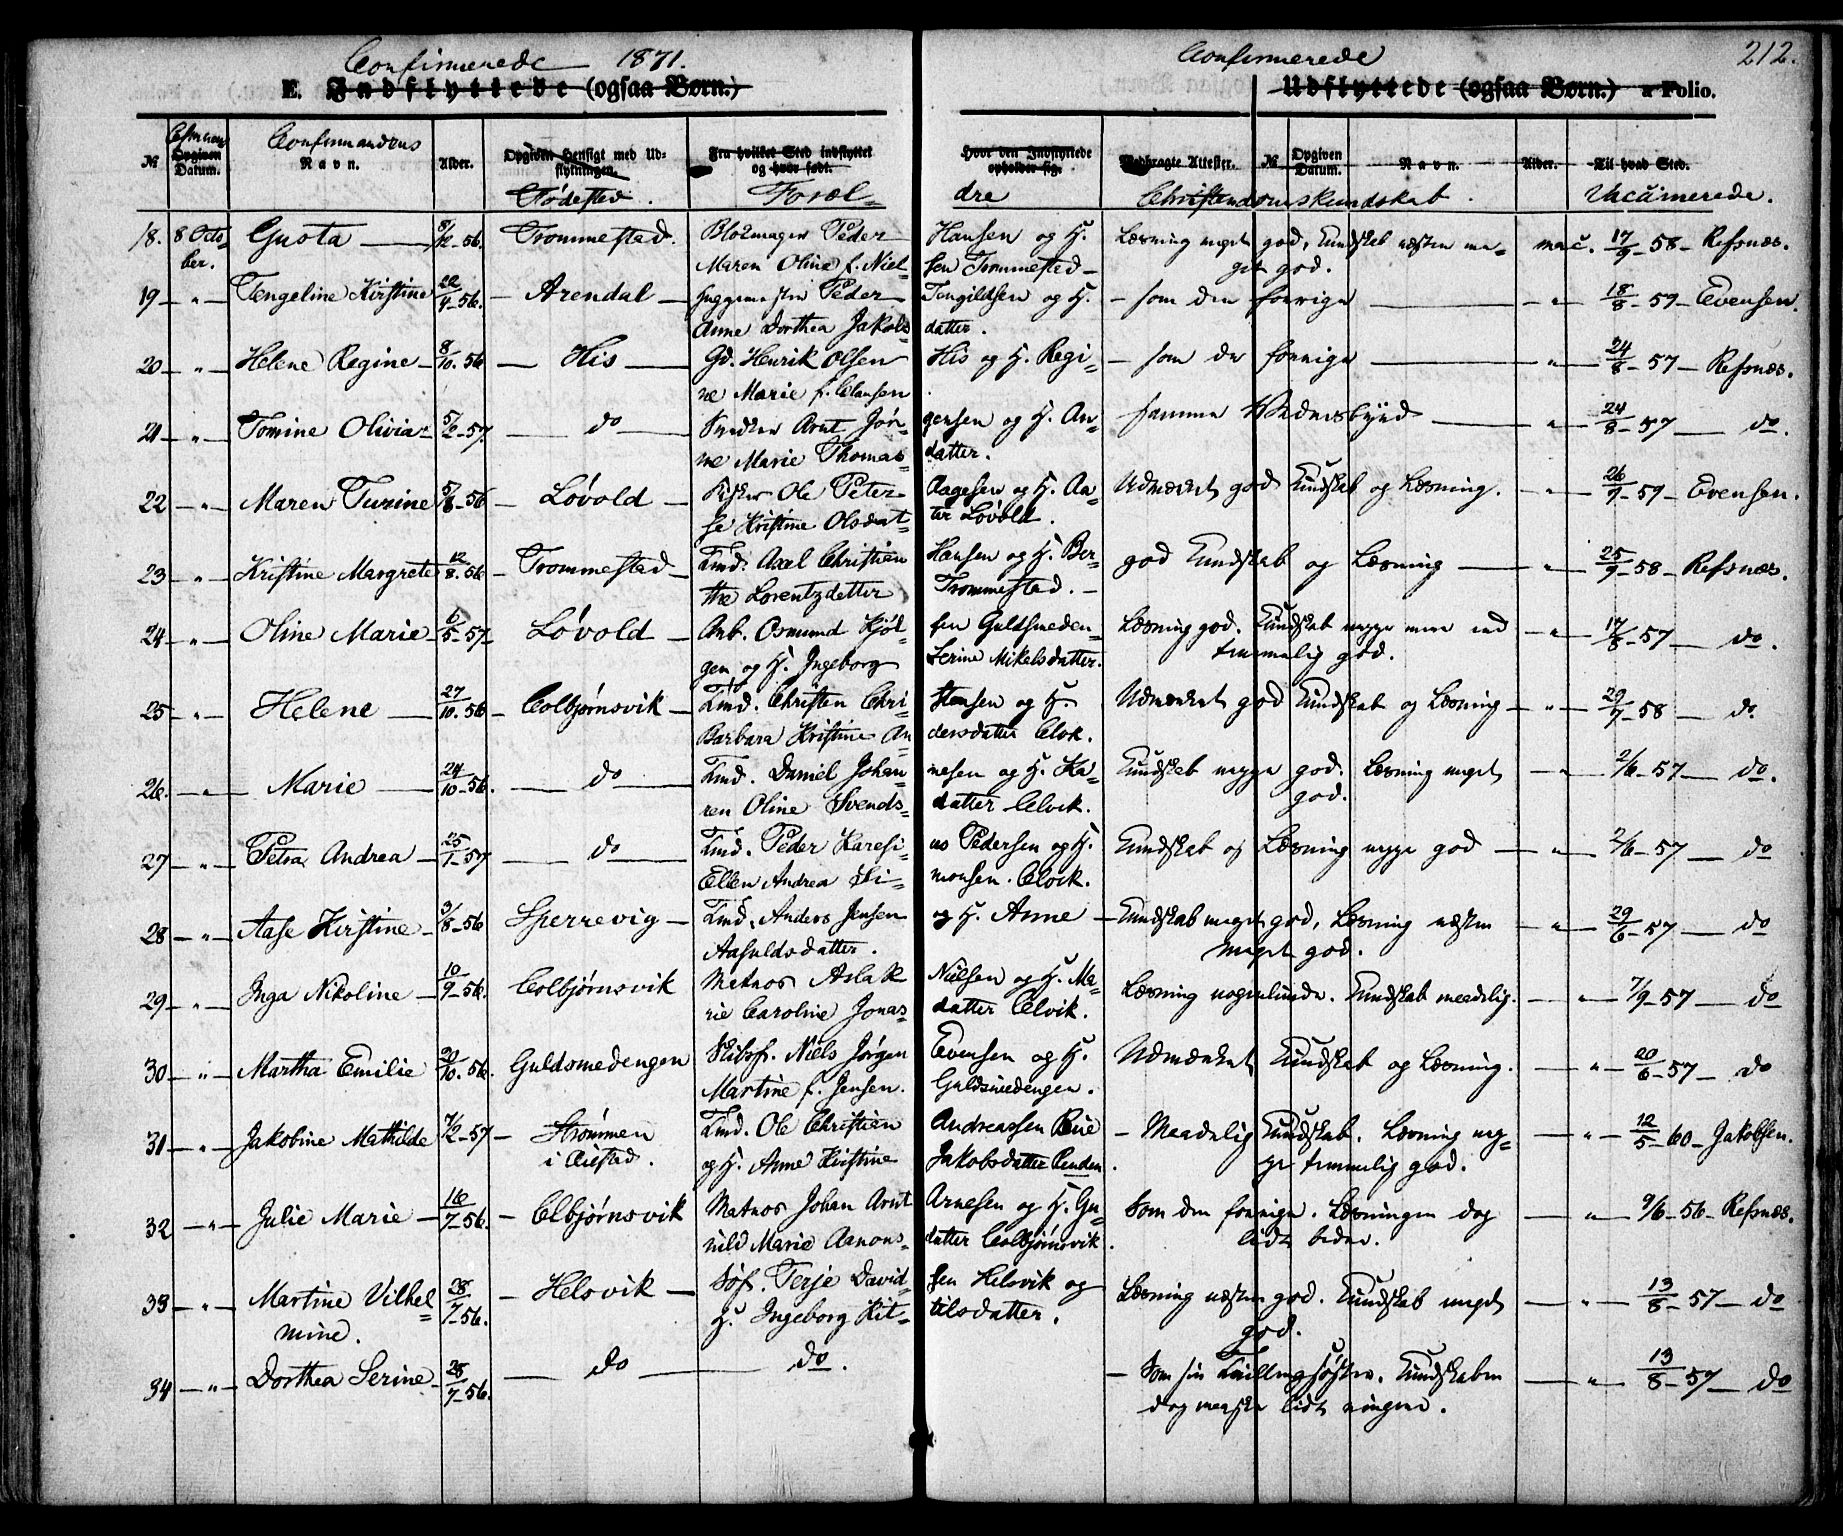 Confirmerede 1871. Confirmerede 212.
E. Indflyttede (ogsaa Børn.) Udflyttede (ogsaa Børn.) Folio.
No. Opgiven Datum. Confirmandens Navn. Alder. Opgiven Hensigt med Udflytningen. Fra hvilket Sted indflyttet og hvor født. Hvor den Indflyttede opholder sig. Medbragte Attester. No. Opgiven Datum. Navn. Alder. Til hvad Sted.
Fødested. Foræl= dre Christendomskundskab. Vaccinerede.
18. 8 Octo- Gusta 8/12-56. Trommestad. Blokmager Peder Hansen og H. Læsning meget god, Kundskab næsten me- 17/9-58- Refsnæs.
ber. Maren Oline f. Niel= sen Trommestad- get god.
19 " Tengeline Kirstine 22/4-56. Arendal Peder Tengildsen og H. - som den forrige " 18/8-59- Evensen.
Anne Dorthea Jakobs datter.
20 " Helene Regine 8/10.56 His Gd. Henrik Olsen His og H. Regi= - som den forrige " 24/8-57- Refsnæs.
ne Marie f. Clausen
21 " Tomine Olivia 5/2-57. do Snedker Arnt Jør= gensen og H. An= samme Vidnesbyrd " 24/8-57 do.
ne Marie Thomas= datter.
22 " Maren Turine 5/8-56 Løvold Fisker Ole Peter Aagesen og H. Aa= Udmærket god Kundskab og Læsning. " 26/9-59- Evensen.
se Kristine Olsdat= ter Løvold.
23 " Kristine Margrete 12/8.56 Trommestad Tmd. Axel Christian Hansen og H. Ber= god Kundskab og Læsning " 25/9-58- Refsnæs.
the Lorentzdetter Trommestad.-
24 " Oline Marie 6/5-57. Løvold Arb. Osmund Kjød= sen Guldsmeden- Læsning god. Kundskab mere end " 17/8-57 do.
gen og H. Ingeborg Serine Mikelsdatter. temmelig god.
25 " Helene 27/10.56 Colbjørnsvik Tmd. Christen Chri= stensen og H. Udmærket god Kundskab og Læsning " 29/7-58 do.
Barbara Kristine An= dersdatter Clvk.
26. " Marie 24/10-56. do Tmd. Daniel Johan nesen og H. Ka= Kundskab mgge god. Læsning meget " 2/6-57 do.
ren Oline Svends= datter Clvik. god.
27 " Petra Andrea 25/1-57 do Tmd. Peder Karesi= us Pedersen og H. Kundskab og Læsning mgge god " 2/6-57 do
Ellen Andrea Si= monsen. Clvik.
28 " Aase Kirstine 3/8-56 Sperrevig Tmd. Anders Jensen og H. Anne Kundskab meget god, Læsning næsten " 29/6-57 do
Aasuldsdatter. meget god.
29 " Inga Nikoline 10/9-56. Colbjørnsvik Matros Aslak Nielsen og H. Ma= Læsning nogenlunde. Kundskab maadelig. " 7/9-57 do
rie Caroline Jonas= datter Clvik.
30 " Martha Emilie 20/10.56. Guldsmedengen Skibsf. Niels Jørgen Evensen og H. Udmærket Kundskab og Læsning. " 20/6-57- do
Martine f. Jensen. Guldsmedengen.
31 " Jakobine Mathilde 7/2-57 Strømmen Tmd. Ole Christian Andreassen Rue - Maadelig Kundskab. Læsning myg= " 12/5-60- Jakobsen.
i Øiestad. og H. Anne Kirstine Jakobsdatter . ge temmelig god.
32 " Julie Marie 16/7-56. Clbjørnsvik Matros Johan Arnt Arnesen og H. Gu= Som den forrige. Læsningen dog " 9/6-56- Refsnæs.
nild Marie Aanons= datter Colbjørnsvik. lidt bedre.
33 " Martine Vilhel= 28/7-56. Helsvik Søf. Terje David sen Helsvik og Læsning næsten god. Kundskab meget " 13/8-57 do
mine. H. Ingeborg Kit= tilsdatter. god.
34 " Dorthea Serine 28/7-56. do do. - Som sin Tvillingsøster. Kundskaben " 13/8-57 do
dog maaske lidt ringere.